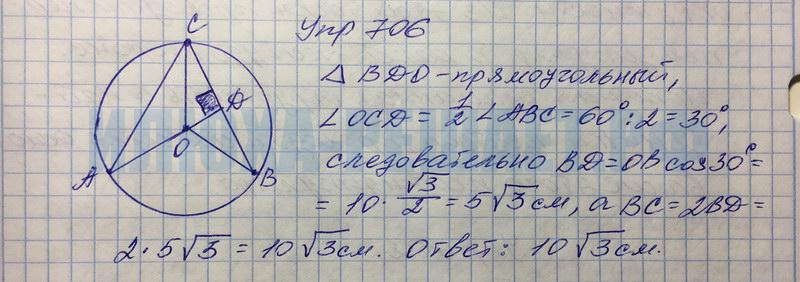 Упр 706
C
△ BDO - прямоугольный,
D
∠OCD = 1/2 ∠ABC = 60° : 2 = 30°,
O
следовательно BD = OB cos 30° =
A
B
= 10 · √3/2 = 5√3 см, а BC = 2BD =
2 · 5√3 = 10√3 см. Ответ: 10√3 см.